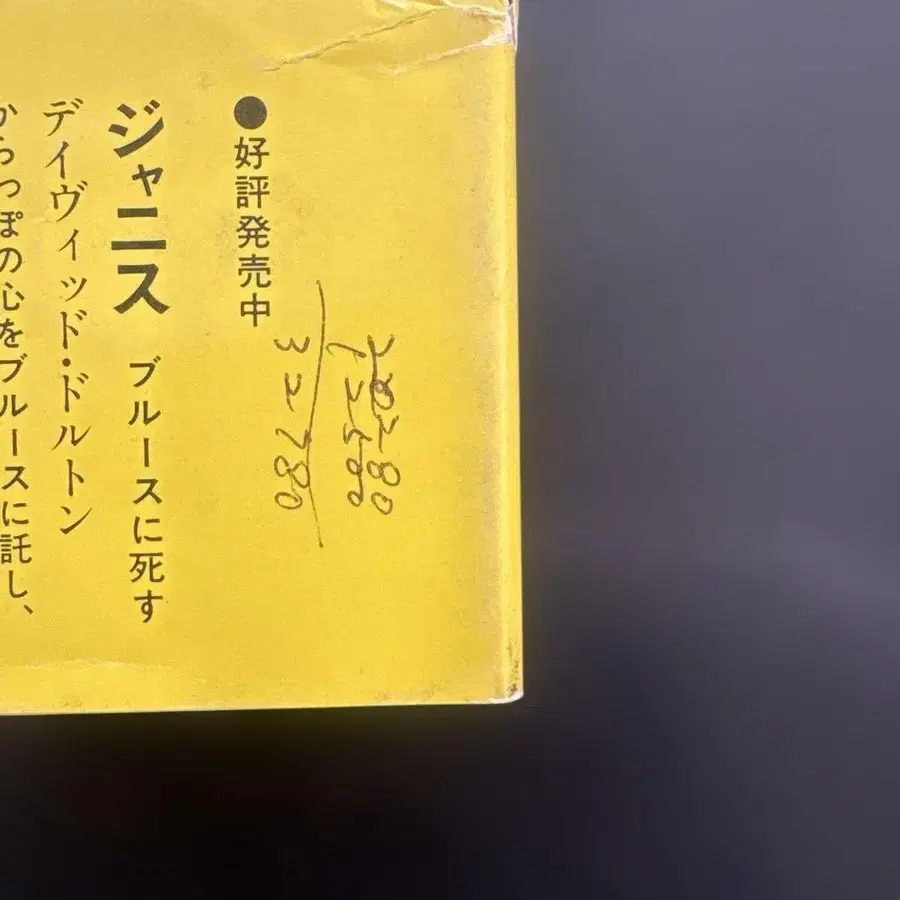 20280
12500
32780
●好評発売中
ジャニス ブルースに死す
デイヴィッド・ドルトン
からっぽの心をブルースに託し、